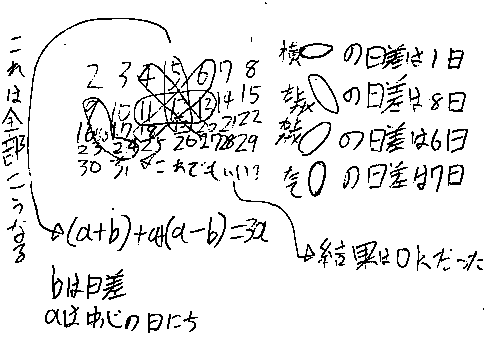 これは全部こうなる
2 3 4 5 6 7 8
9 10 11 12 13 14 15
16 17 18 19 20 21 22
23 24 25 26 27 28 29
30 31 これでもいい?
横 の日差は1日
の日差は8日
の日差は6日
の日差は7日
(a+b)+a+(a-b)=3a
結果はOKだった
bは日差
aは中心の日にち